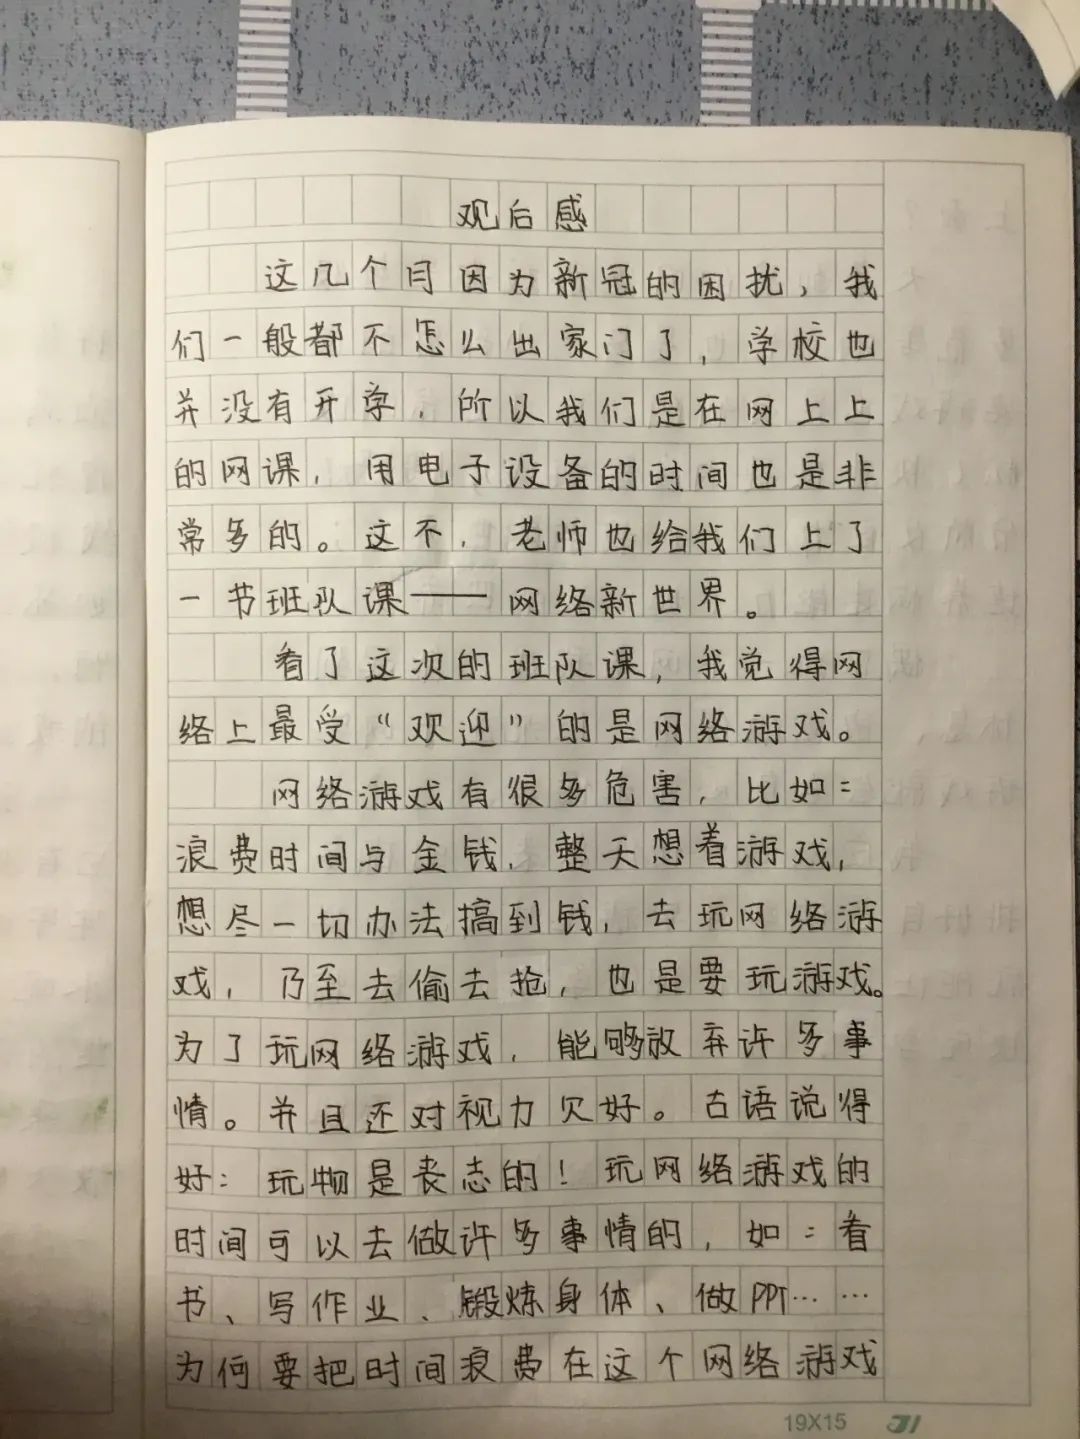 观后感
这几个月因为新冠的困扰，我
们一般都不怎么出家门了，学校也
并没有开学，所以我们是在网上上
的网课，用电子设备的时间也是非
常多的。这不，老师也给我们上了
一节班队课——网络新世界。
看了这次的班队课，我觉得网
络上最受“欢迎”的是网络游戏。
网络游戏有很多危害，比如：
浪费时间与金钱，整天想着游戏，
想尽一切办法搞到钱，去玩网络游
戏，乃至去偷去抢，也是要玩游戏。
为了玩网络游戏，能够放弃许多事
情。并且还对视力欠好。古语说得
好：玩物是丧志的！玩网络游戏的
时间可以去做许多事情的，如：看
书、写作业、锻炼身体、做PPT……
为何要把时间浪费在这个网络游戏
19X15